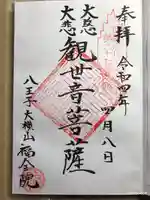 奉拝
令和四年
四月八日
大慈
大悲
観世音菩薩
八王子 大横山
福全院